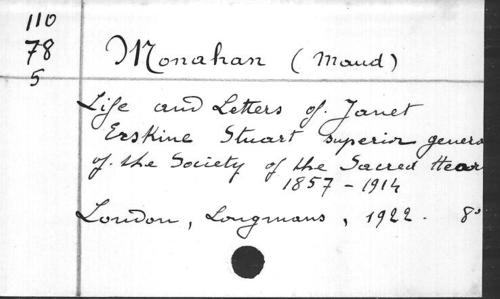 110
78
5
Monahan (Maud)
Life and Letters of Janet
Erskine Stuart superior genera
of the Society of the Sacred Hear
1857 - 1914
London, Longmans, 1922. 8°